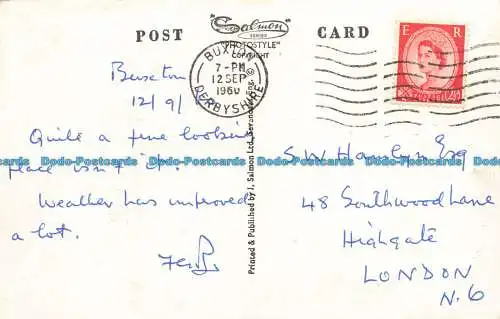 POST CARD
"Salmon"
SERIES
"PHOTOSTYLE"
COPYRIGHT
BUXTON
7-PM
12 SEP
1960
DERBYSHIRE
E R
2½D
Buxton
12/9/
Quite a fine looking
place isn't it.
Weather has improved
a lot.
S.W. Esq
48 Southwood Lane
Highgate
LONDON
N.6
Printed & Published by J. Salmon Ltd., Sevenoaks, Eng. ©
Dodo-Postcards Dodo-Postcards Dodo-Postcards Dodo-Postcards Dodo-Postcards Dodo-Postcards